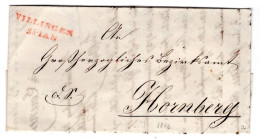 VILLINGEN
An
Großherzogliches Bezirksamt
Hornberg